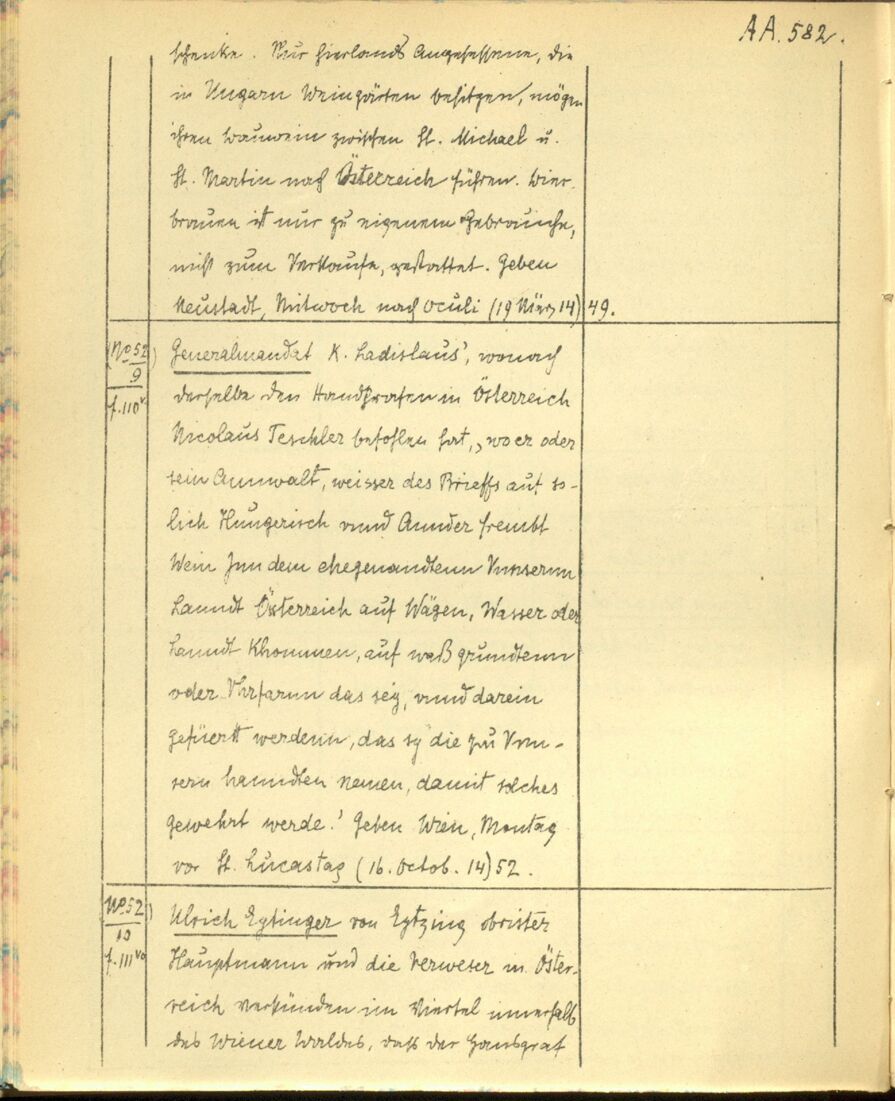 AA. 582.
schenke. Nur hierlands Angesessene, die
in Ungarn Weingärten besitzen, mögen
ihren Bauwein zwischen St. Michael u.
St. Martin nach Österreich führen. Bier-
brauen ist nur zu eigenem Gebrauche,
nicht zum Verkaufe, gestattet. Geben
Neustadt, Mitwoch nach Oculi (19 März 14)49.
(No 52)
9
f. 110v.
Generalmandat K. Ladislaus', wonach
derselbe den Handgrafen in Österreich
Nicolaus Teschler befohlen hat, „wo er oder
sein Annwalt, weisser des Brieffs auf so-
lich Hungerisch vnnd Annder frembt
Wein Jnn dem ehegenandtenn Vnnserm
Lanndt Österreich auf Wägen, Wasser oder
Lanndt Khommen, auf waß grundtenn
oder Vhrfarnn das seÿ, vnnd darein
gefüertt werdenn, das sÿ die zu Vnn-
sern hanndten nemen, damit solches
gewehrt werde.' Geben Wien, Montag
vor St. Lucastag (16. Octob. 14)52.
No 52)
10
f. 111vo
Ulrich Eytzinger von Eytzing obrister
Hauptmann und die Verweser in Öster-
reich verkünden im Viertel innerhalb
des Wiener Waldes, daß der Hansgraf